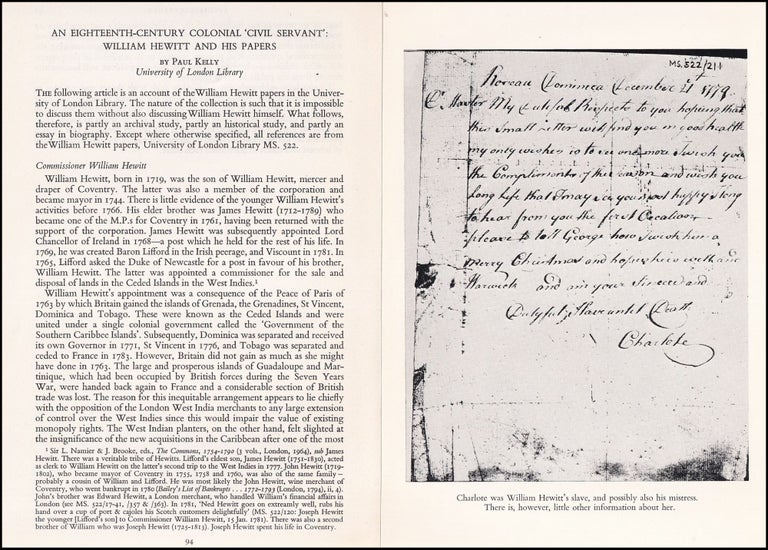 AN EIGHTEENTH-CENTURY COLONIAL 'CIVIL SERVANT':
WILLIAM HEWITT AND HIS PAPERS
BY PAUL KELLY
University of London Library
THE following article is an account of the William Hewitt papers in the Univer-
sity of London Library. The nature of the collection is such that it is impossible
to discuss them without also discussing William Hewitt himself. What follows,
therefore, is partly an archival study, partly an historical study, and partly an
essay in biography. Except where otherwise specified, all references are from
the William Hewitt papers, University of London Library MS. 522.
Commissioner William Hewitt
William Hewitt, born in 1719, was the son of William Hewitt, mercer and
draper of Coventry. The latter was also a member of the corporation and
became mayor in 1744. There is little evidence of the younger William Hewitt's
activities before 1766. His elder brother was James Hewitt (1712-1789) who
became one of the M.P.s for Coventry in 1761, having been returned with the
support of the corporation. James Hewitt was subsequently appointed Lord
Chancellor of Ireland in 1768—a post which he held for the rest of his life. In
1769, he was created Baron Lifford in the Irish peerage, and Viscount in 1781. In
1765, Lifford asked the Duke of Newcastle for a post in favour of his brother,
William Hewitt. The latter was appointed a commissioner for the sale and
disposal of lands in the Ceded Islands in the West Indies.¹
William Hewitt's appointment was a consequence of the Peace of Paris of
1763 by which Britain gained the islands of Grenada, the Grenadines, St Vincent,
Dominica and Tobago. These were known as the Ceded Islands and were
united under a single colonial government called the 'Government of the
Southern Caribbee Islands'. Subsequently, Dominica was separated and received
its own Governor in 1771, St Vincent in 1776, and Tobago was separated and
ceded to France in 1783. However, Britain did not gain as much as she might
have done in 1763. The large and prosperous islands of Guadaloupe and Mar-
tinique, which had been occupied by British forces during the Seven Years
War, were handed back again to France and a considerable section of British
trade was lost. The reason for this inequitable arrangement appears to lie chiefly
with the opposition of the London West India merchants to any large extension
of control over the West Indies since this would impair the value of existing
monopoly rights. The West Indian planters, on the other hand, felt slighted at
the insignificance of the new acquisitions in the Caribbean after one of the most
¹ Sir L. Namier & J. Brooke, eds., The Commons, 1754-1790 (3 vols., London, 1964), sub James
Hewitt. There was a veritable tribe of Hewitts. Lifford's eldest son, James Hewitt (1751-1830), acted
as clerk to William Hewitt on the latter's second trip to the West Indies in 1777. John Hewitt (1719-
1802), who became mayor of Coventry in 1755, 1758 and 1760, was also of the same family—
probably a cousin of William and Lifford. He was most likely the John Hewitt, wine merchant of
Coventry, who went bankrupt in 1780 (Bailey's List of Bankrupts . . . 1772-1793 (London, 1794), ii, 4).
John's brother was Edward Hewitt, a London merchant, who handled William's financial affairs in
London (see MS. 522/17-41, /357 & /363). In 1781, 'Ned Hewitt goes on extreamly well, rubs his
hand over a cup of port & cajoles his Scotch customers delightfully' (MS. 522/120: Joseph Hewitt
the younger [Lifford's son] to Commissioner William Hewitt, 15 Jan. 1781). There was also a second
brother of William who was Joseph Hewitt (1725-1813). Joseph Hewitt spent his life in Coventry.
94
MS. 522/211
Roseau Dominica December 21 1779
Master My Dutiful Respects to you hoping that
this Small Letter will find you in good health
my only wishes is to see one more I wish you
the Compliments of the Season and wish you
Long Life that I may see you most happy I long
to hear from you the first Occation
please to tell George how I wish him a
merry Christmas and hopes he is well and
Harwick and am your Sincere and
Dutyful Slave until Death
Charlote
Charlote was William Hewitt's slave, and possibly also his mistress.
There is, however, little other information about her.